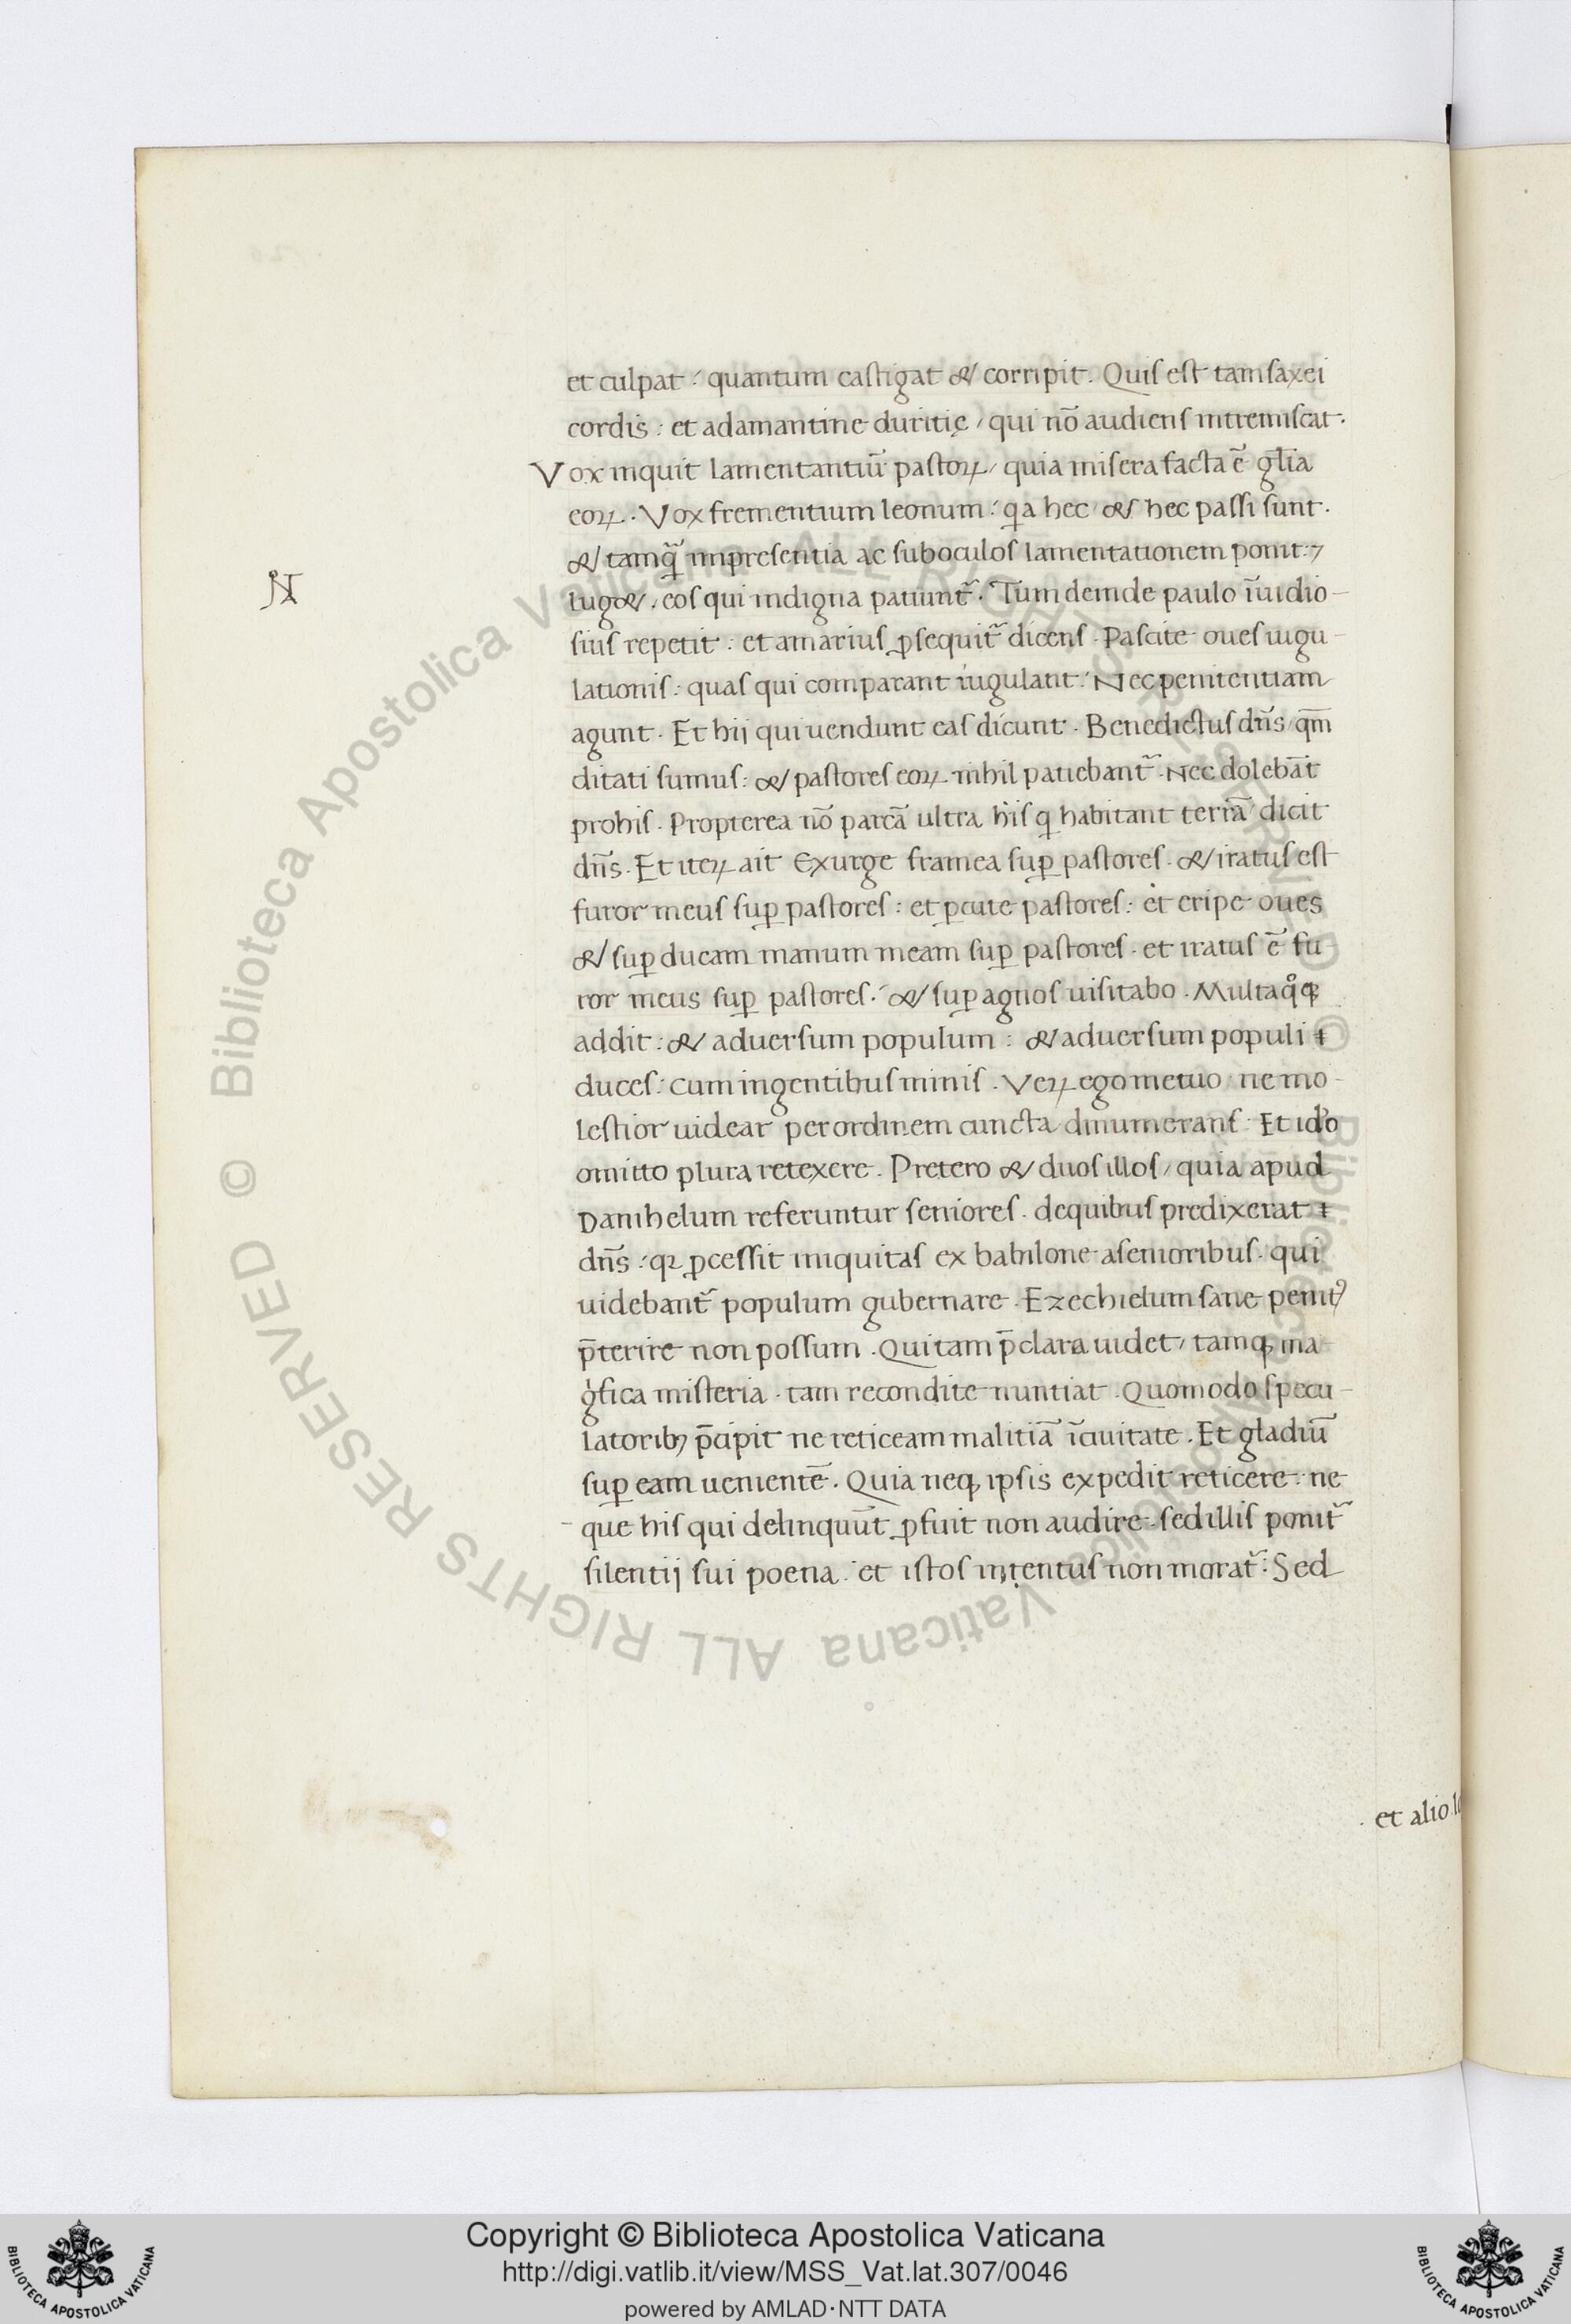 et culpat: quantum castigat & corripit. Quis est tam saxei
cordis: et adamantine duritię, qui nō audiens intremiscat.
Vox inquit lamentantiū pastoꝝ, quia misera facta ē gl̄ia
eoꝝ. Vox frementium leonum: qa hec & hec passi sunt.
& tamq̃ inpresentia ac suboculos lamentationem ponit: ⁊
lug&. eos qui indigna patiunt᷑. Tum deinde paulo īuidio-
sius repetit: et amarius ꝓsequit᷑ dicens. Pascite oues iugu-
lationis: quas qui comparant iugulant: Nec penitentiam
agunt. Et hij qui uendunt eas dicunt. Benedictus dn̄s qm̄
ditati sumus: & pastores eoꝝ nihil patiebant᷑. Nec dolebāt
prohis. Propterea nō parcā ultra his q habitant terrā dicit
dn̄s. Et iteꝝ ait Exurge framea suꝑ pastores. & iratus est
furor meus suꝑ pastores: et ꝑcute pastores: et eripe oues
& suꝑ ducam manum meam suꝑ pastores. et iratus ē fu-
ror meus suꝑ pastores. & suꝑ agnos uisitabo. Multa qͦꝗ
addit: & aduersum populum: & aduersum populi
duces: cum ingentibus minis. Veꝝ ego metuo ne mo-
lestior uidear per ordinem cuncta dinumerans. Et id̕o
omitto plura retexere. Pretero & duos illos, quia apud
Danihelum referuntur seniores. dequibus predixerat
dn̄s: qꝛ ꝓcessit iniquitas ex babilone asenioribus. qui
uidebant᷑ populum gubernare. Ezechielum sane penitꝰ
p̄terire non possum. Qui tam p̄clara uidet, tamꝗ ma-
gͥfica misteria. tam recondite nuntiat. Quomodo specu-
latoribꝫ p̄cipit ne reticeam malitiā īciuitate. Et gladiū
suꝑ eam uenientē. Quia neꝗ ipsis expedit reticere: ne
que his qui delinquūt ꝓfuit non audire. sed illis ponit᷑
silentij sui poena. et istos intentus non morat᷑: Sed
et alio
Copyright © Biblioteca Apostolica Vaticana
http://digi.vatlib.it/view/MSS_Vat.lat.307/0046
powered by AMLAD·NTT DATA
BIBLIOTECA APOSTOLICA VATICANA
BIBLIOTECA APOSTOLICA VATICANA
© Biblioteca Apostolica Vaticana ALL RIGHTS RESERVED © Biblioteca Apostolica Vaticana ALL RIGHTS RESERVED